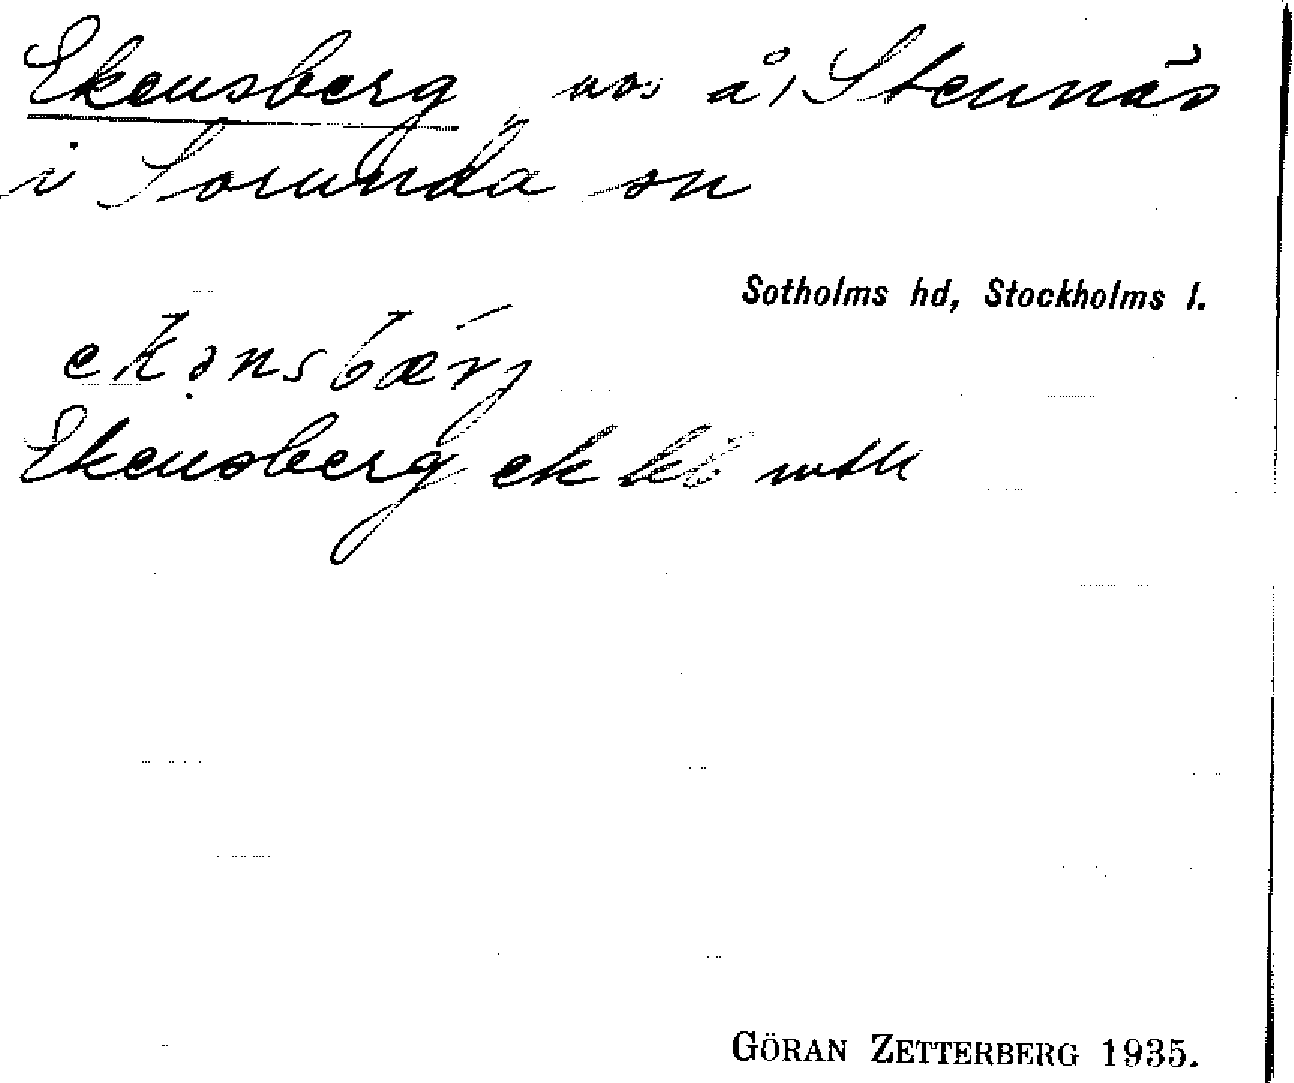 Ekensberg, avs å Stennäs
i Sorunda sn
Sotholms hd, Stockholms l.
ekənsbærj
Ekensberg ek kb
GÖRAN ZETTERBERG 1935.